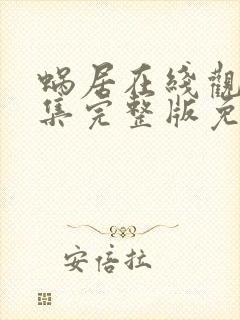 蝸居在綫觀
集完整版免
安倍拉